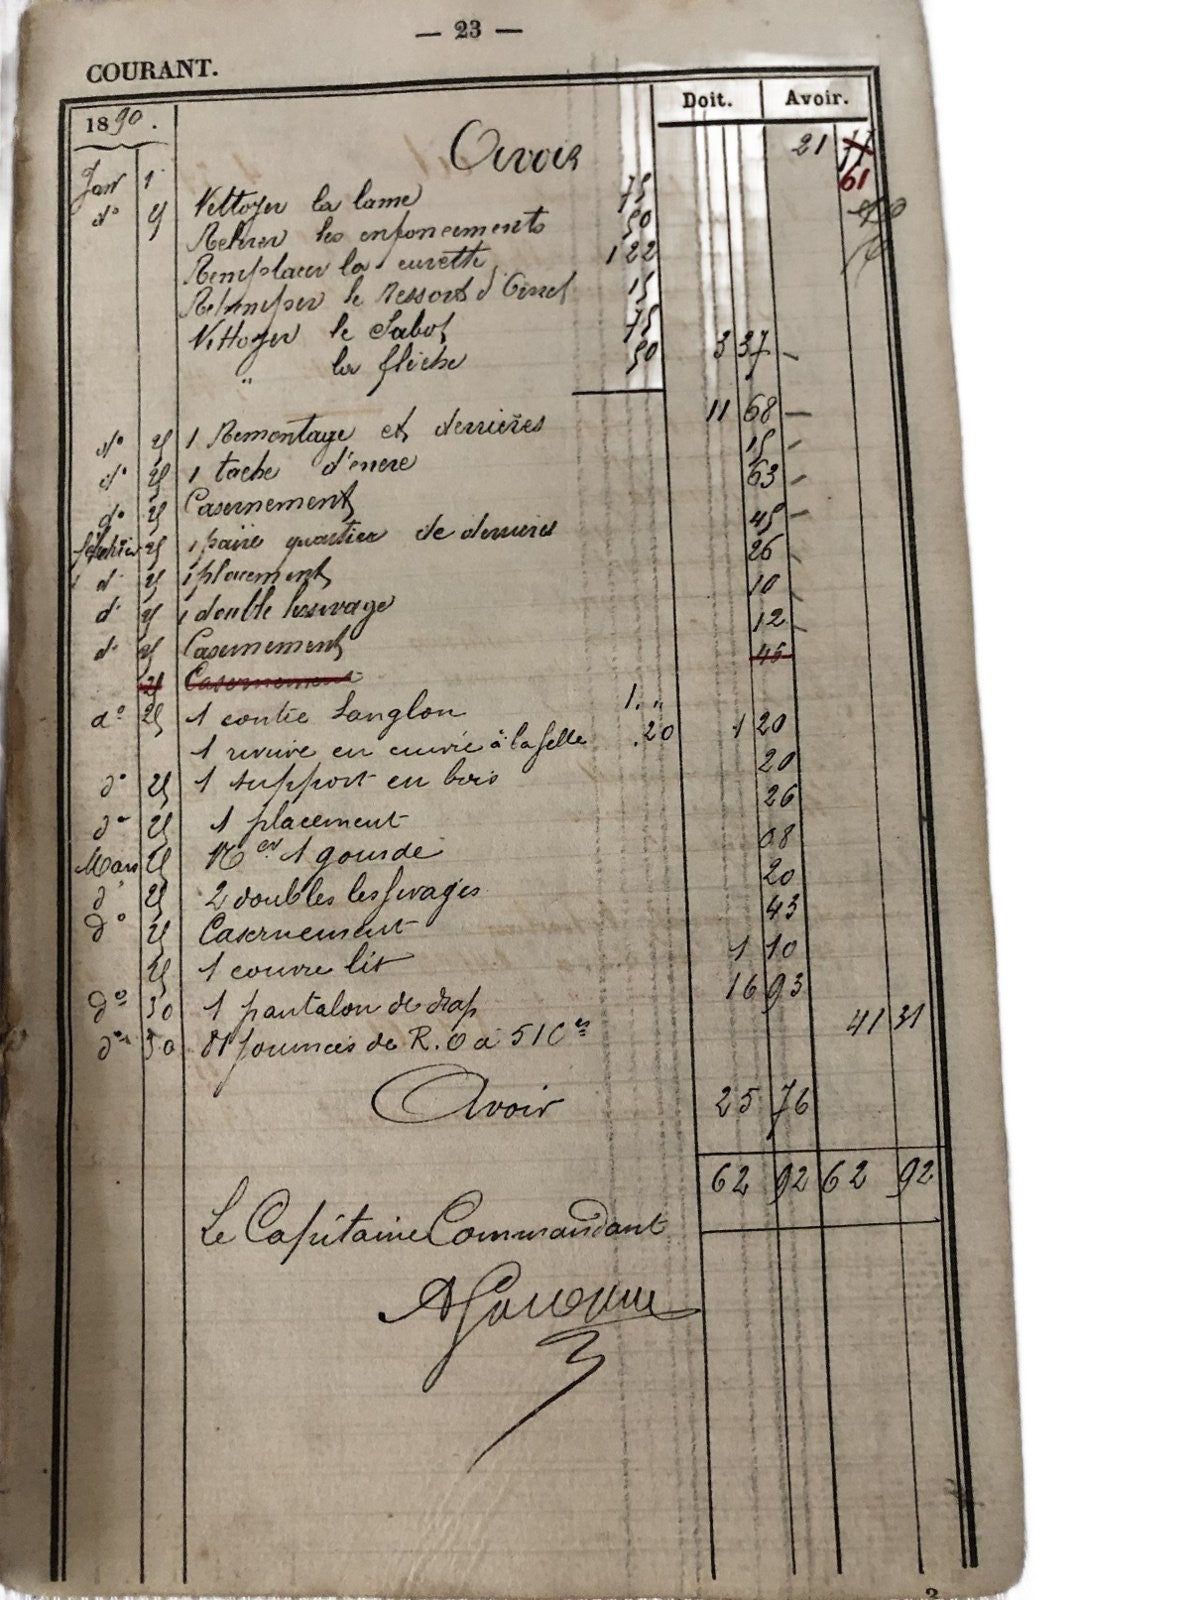 — 23 —
COURANT.
Doit. Avoir.
1890.
Avoir 21 77
61
Janv 1
do 25 Nettoyer la lame 75
Retirer les enfoncements 50
Remplacer la cuvette 122
Retremper le Ressort d' 15
Nettoyer le Sabot 75
" la flèche 50 3 37
do 25 1 Remontage et derrières 11 68
do 25 1 tache d'encre 15
do 25 Casernement 63
février 25 1 paire quartier de derrière 45
do 25 1 placement 26
do 25 1 double lessivage 10
do 25 Casernement 12
25 Casernement 45
do 25 1 contre Sanglon 1. "
1 rivure en cuivre à la selle .20 1 20
do 25 1 support en bois 20
do 25 1 placement 26
Mars 25 1 gourde 08
do 25 2 doubles lessivages 20
do 25 Casernement 43
25 1 couvre lit 1 10
do 30 1 pantalon de drap 16 93
do 30 81 journées de R. O à 51 Ces 41 31
Avoir 25 76
62 92 62 92
Le Capitaine Commandant
2